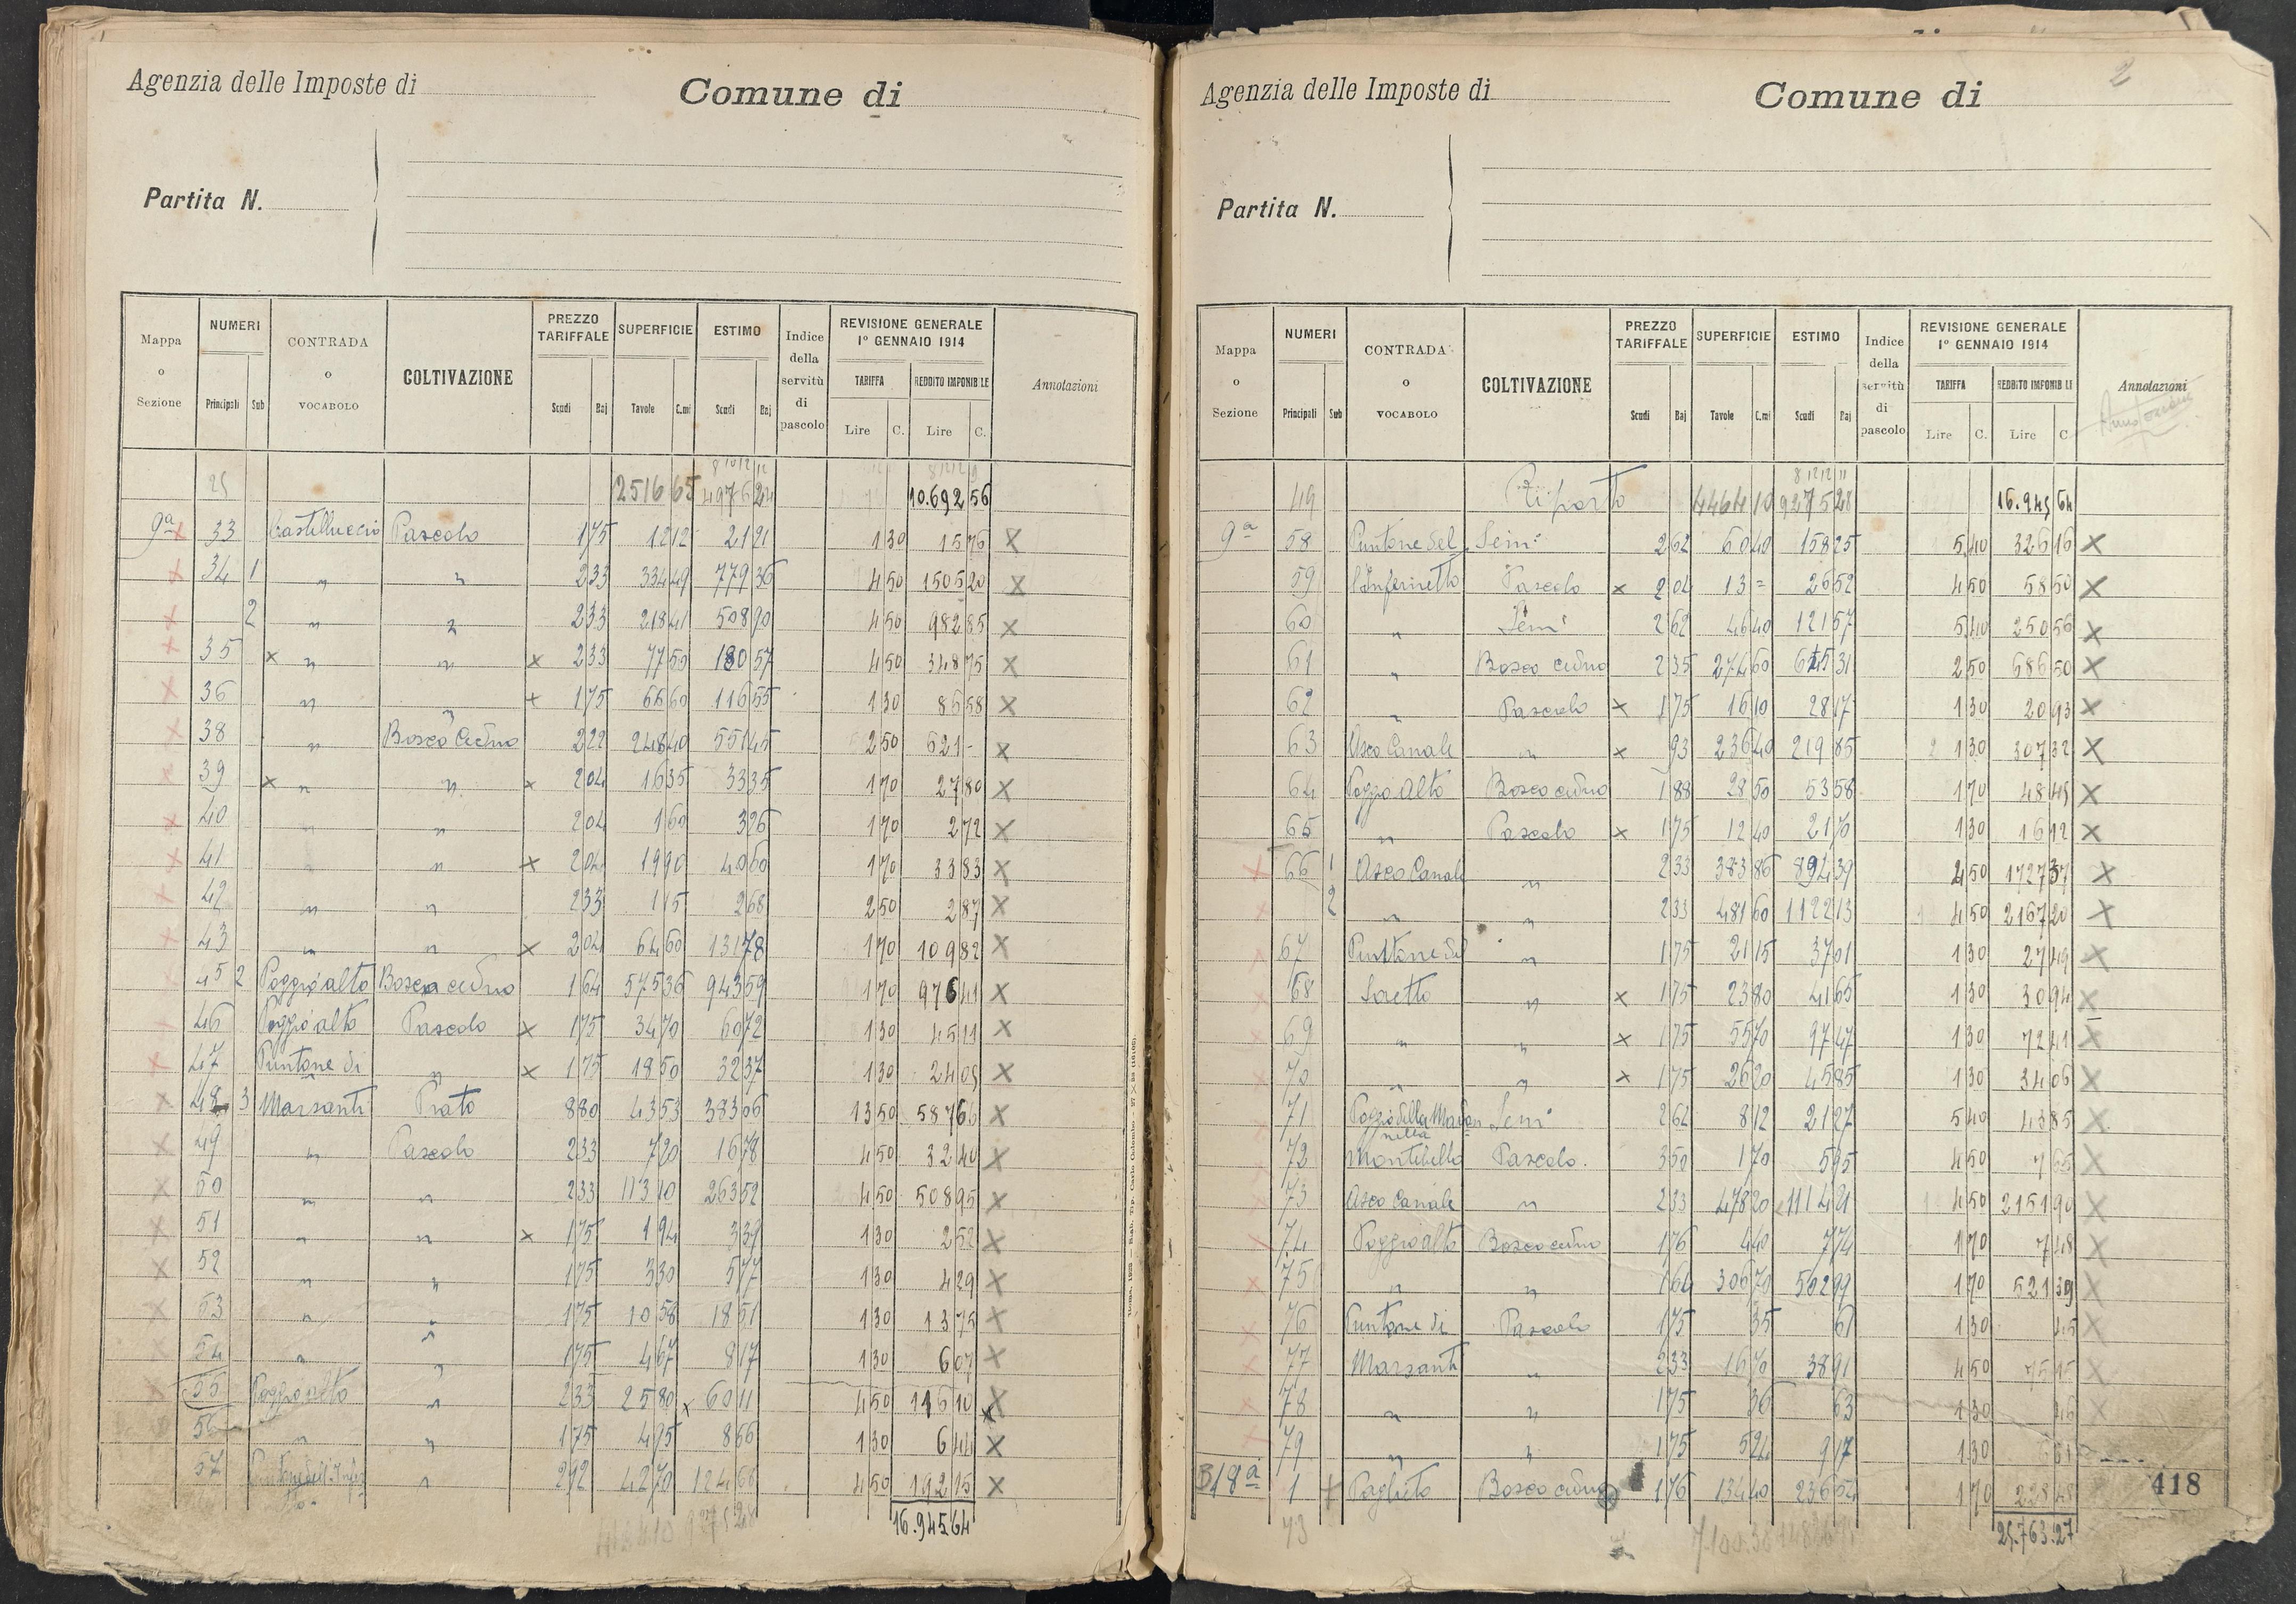 Agenzia delle Imposte di Comune di
Partita N.
Mappa o Sezione NUMERI Principali Sub CONTRADA o VOCABOLO COLTIVAZIONE PREZZO TARIFFALE Scudi Baj SUPERFICIE Tavole C.mi ESTIMO Scudi Baj Indice della servitù di pascolo REVISIONE GENERALE 1° GENNAIO 1914 TARIFFA Lire C. REDDITO IMPONIBILE Lire C. Annotazioni
25 2516 65 4976 24 10.692 56
9a x 33 Castelluccio Pascolo 1 75 12 12 21 21 1 30 15 76 X
x 34 1 " " 2 33 334 49 779 36 4 50 1505 20 X
x 2 " " 2 33 218 41 508 90 4 50 982 85 X
x 35 x " " x 2 33 77 50 180 57 4 50 348 75 X
x 36 " " x 1 75 66 60 116 55 1 30 86 58 X
x 38 " Bosco Ceduo 2 22 248 40 551 45 2 50 621 - X
x 39 x " " x 2 04 16 35 33 35 1 70 27 80 X
x 40 " " 2 04 1 60 3 26 1 70 2 72 X
x 41 " " x 2 04 19 90 40 60 1 70 33 83 X
x 42 " " 2 33 1 15 2 68 2 50 2 87 X
x 43 " " x 2 04 64 60 131 78 1 70 109 82 X
45 2 Poggio alto Bosco ceduo 1 64 575 36 943 59 1 70 976 41 X
46 Poggio alto Pascolo x 1 75 34 70 60 72 1 30 45 11 X
x 47 Puntone di " x 1 75 18 50 32 37 1 30 24 05 X
x 48 3 Marsanti Prato 8 80 43 53 383 06 13 50 587 66 X
x 49 " Pascolo 2 33 7 20 16 78 4 50 32 40 X
x 50 " " 2 33 113 10 263 52 4 50 508 95 X
x 51 " " x 1 75 1 94 3 39 1 30 2 52 X
x 52 " " 1 75 3 30 5 77 1 30 4 29 X
x 53 " " 1 75 10 58 18 51 1 30 13 75 X
x 54 " " 1 75 4 67 8 17 1 30 6 07 X
x 55 Poggio alto " 2 33 25 80 x 60 11 4 50 116 10 X
56 " " 1 75 4 95 8 66 1 30 6 44 X
57 " 2 92 42 70 124 68 4 50 192 15 X
16.945 64
Agenzia delle Imposte di Comune di 2
Partita N.
Mappa o Sezione NUMERI Principali Sub CONTRADA o VOCABOLO COLTIVAZIONE PREZZO TARIFFALE Scudi Baj SUPERFICIE Tavole C.mi ESTIMO Scudi Baj Indice della servitù di pascolo REVISIONE GENERALE 1° GENNAIO 1914 TARIFFA Lire C. REDDITO IMPONIBILE Lire C. Annotazioni
Annotazioni
49 Riporto 4464 10 9275 28 16.945 64
9a 58 Puntone del Semi 2 62 60 40 158 25 5 40 326 16 X
59 l'Infernetto Pascolo x 2 04 13 = 26 52 4 50 58 50 X
60 " Semi 2 62 46 40 121 57 5 40 250 56 X
61 " Bosco ceduo 2 35 274 60 645 31 2 50 686 50 X
62 " Pascolo x 1 75 16 10 28 17 1 30 20 93 X
63 Asco Canale " x 93 236 40 219 85 1 30 307 32 X
64 Poggio alto Bosco ceduo 1 88 28 50 53 58 1 70 48 45 X
65 " Pascolo x 1 75 12 40 21 70 1 30 16 12 X
x 66 1 Asco Canale " 2 33 383 86 894 39 4 50 1727 37 X
x 2 " " 2 33 481 60 1122 13 4 50 2167 20 X
67 Puntone del " 1 75 21 15 37 01 1 30 27 49 X
68 Soretto " x 1 75 23 80 41 65 1 30 30 94 X
69 " " x 1 75 55 70 97 47 1 30 72 41 X
70 " " x 1 75 26 20 45 85 1 30 34 06 X
71 Poggio della Madonnella Semi 2 62 8 12 21 27 5 40 43 85 X
72 Montibello Pascolo 3 50 1 70 5 95 4 50 7 65 X
73 Asco Canale " 2 33 478 20 1114 21 4 50 2151 90 X
74 Poggio alto Bosco ceduo 1 76 4 40 7 74 1 70 7 48 X
x 75 " " 1 64 306 70 502 99 1 70 521 39 X
x 76 Puntone di Pascolo 1 75 35 61 1 30 45 X
x 77 Marsanti " 2 33 16 70 38 91 4 50 75 15 X
x 78 " " 1 75 36 63 1 30 46 X
79 " " 1 75 5 24 9 17 1 30
B 18a 1 Paglieto Bosco ceduo 1 76 134 40 236 54 1 70 228 48
418
73 25.763.27